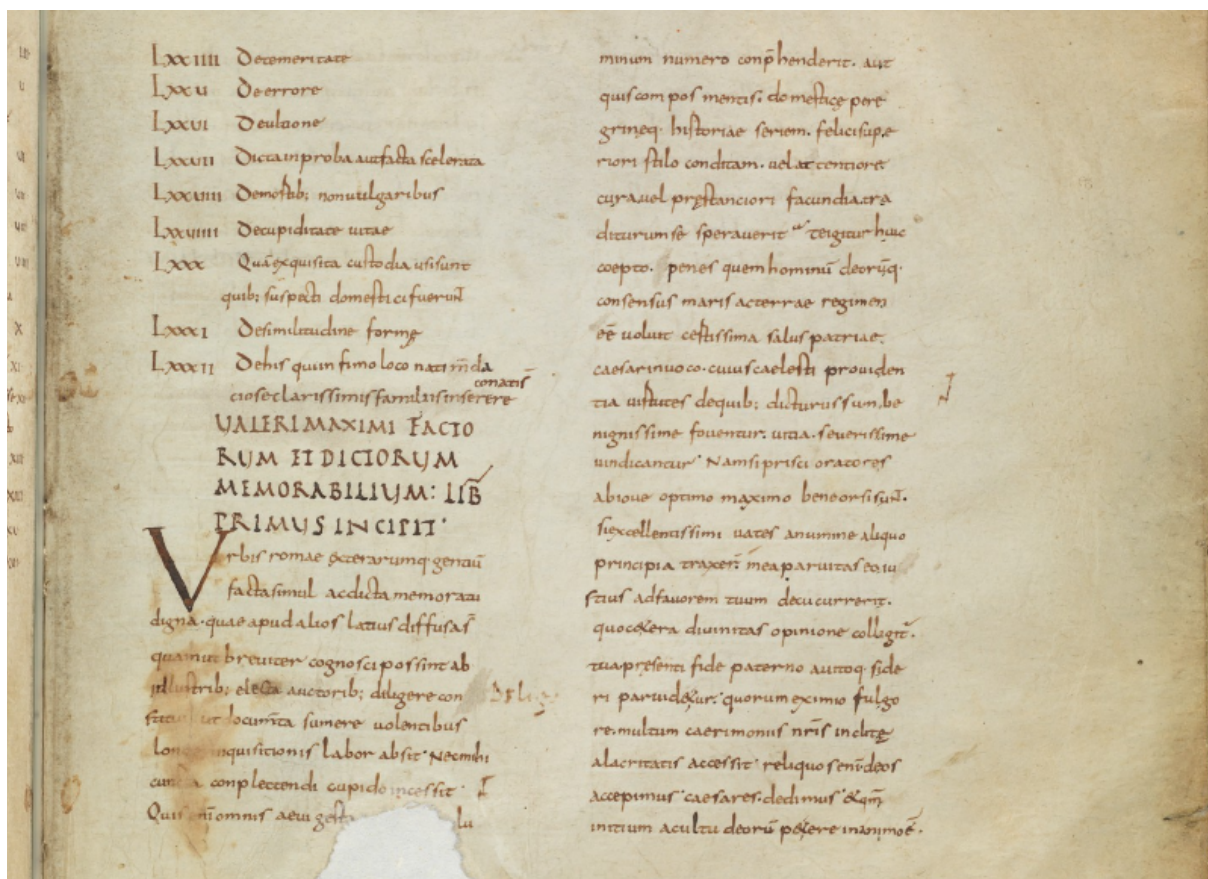 Lxxiiii Detemeritate
Lxxu Deerrore
Lxxui Deultione
Lxxuii Dictainproba autfacta scelerata
Lxxuiii Demortib; nonuulgaribus
Lxxuiiii Decupiditate uitae
Lxxx Quāexquisita custodia usisunt
quib; suspecti domesticifuerunt
Lxxxi Desimilitudine formę
Lxxxii Dehis quiinfimo loco nati m̄da
conatis̄
cioseclarissimisfamiliisinserere
UALERIMAXIMI FACTO
RUM ET DICTORUM
MEMORABILIUM: LIB̄
PRIMUS INCIPIT·
Vrbis romae exterarumq· gentiū
factasimul acdicta memoratu
digna·quae apud alios latius diffusas̄
quamut breuiter cognosci possint ab
illustrib; electa auctorib; diligerecon
stitui ut documta sumere uolentibus
longe inquisitionis labor absit· Necmihi
cuncta conplectendi cupido incessit·
Quis enī omnis aeui gesta lu
minum numero conp̄henderit. aut
quiscompos mentis; domesticę pere
grinęq· historiae seriem. felicisupe
riori stilo conditam. uel attentiore
curauel pręstanciori facundia.tra
diturumse sperauerit· Teigitur huic
coepto. penes quemhominū deorūq·
consensus maris acterrae regimen
eē uoluit certissima salus patriae.
caesarinuoco.cuiuscaelesti prouiden
tia uirtutes dequib; dicturussum.be
nignissime fouentur. uitia.seuerissime
uindicantur· Namsiprisci oratores
abioue optimo maximo beneorsisunt.
siexcellentissimi uates anumine aliquo
principia traxer̄. meaparuitas eo.iu
stius adfauorem tuum decucurrerit.
quocetera diuinitas opinione colligit̄.
tuapresenti fide paterno auitoq· side
ri paruidetur. quorumeximio fulgo
re.multum caerimoniis nr̄is inclitę
alacritatis accessit· reliquosenīdeos
accepimus·caesares.dedimus·&qm̄
initium acultu deorū petere inanimoē·